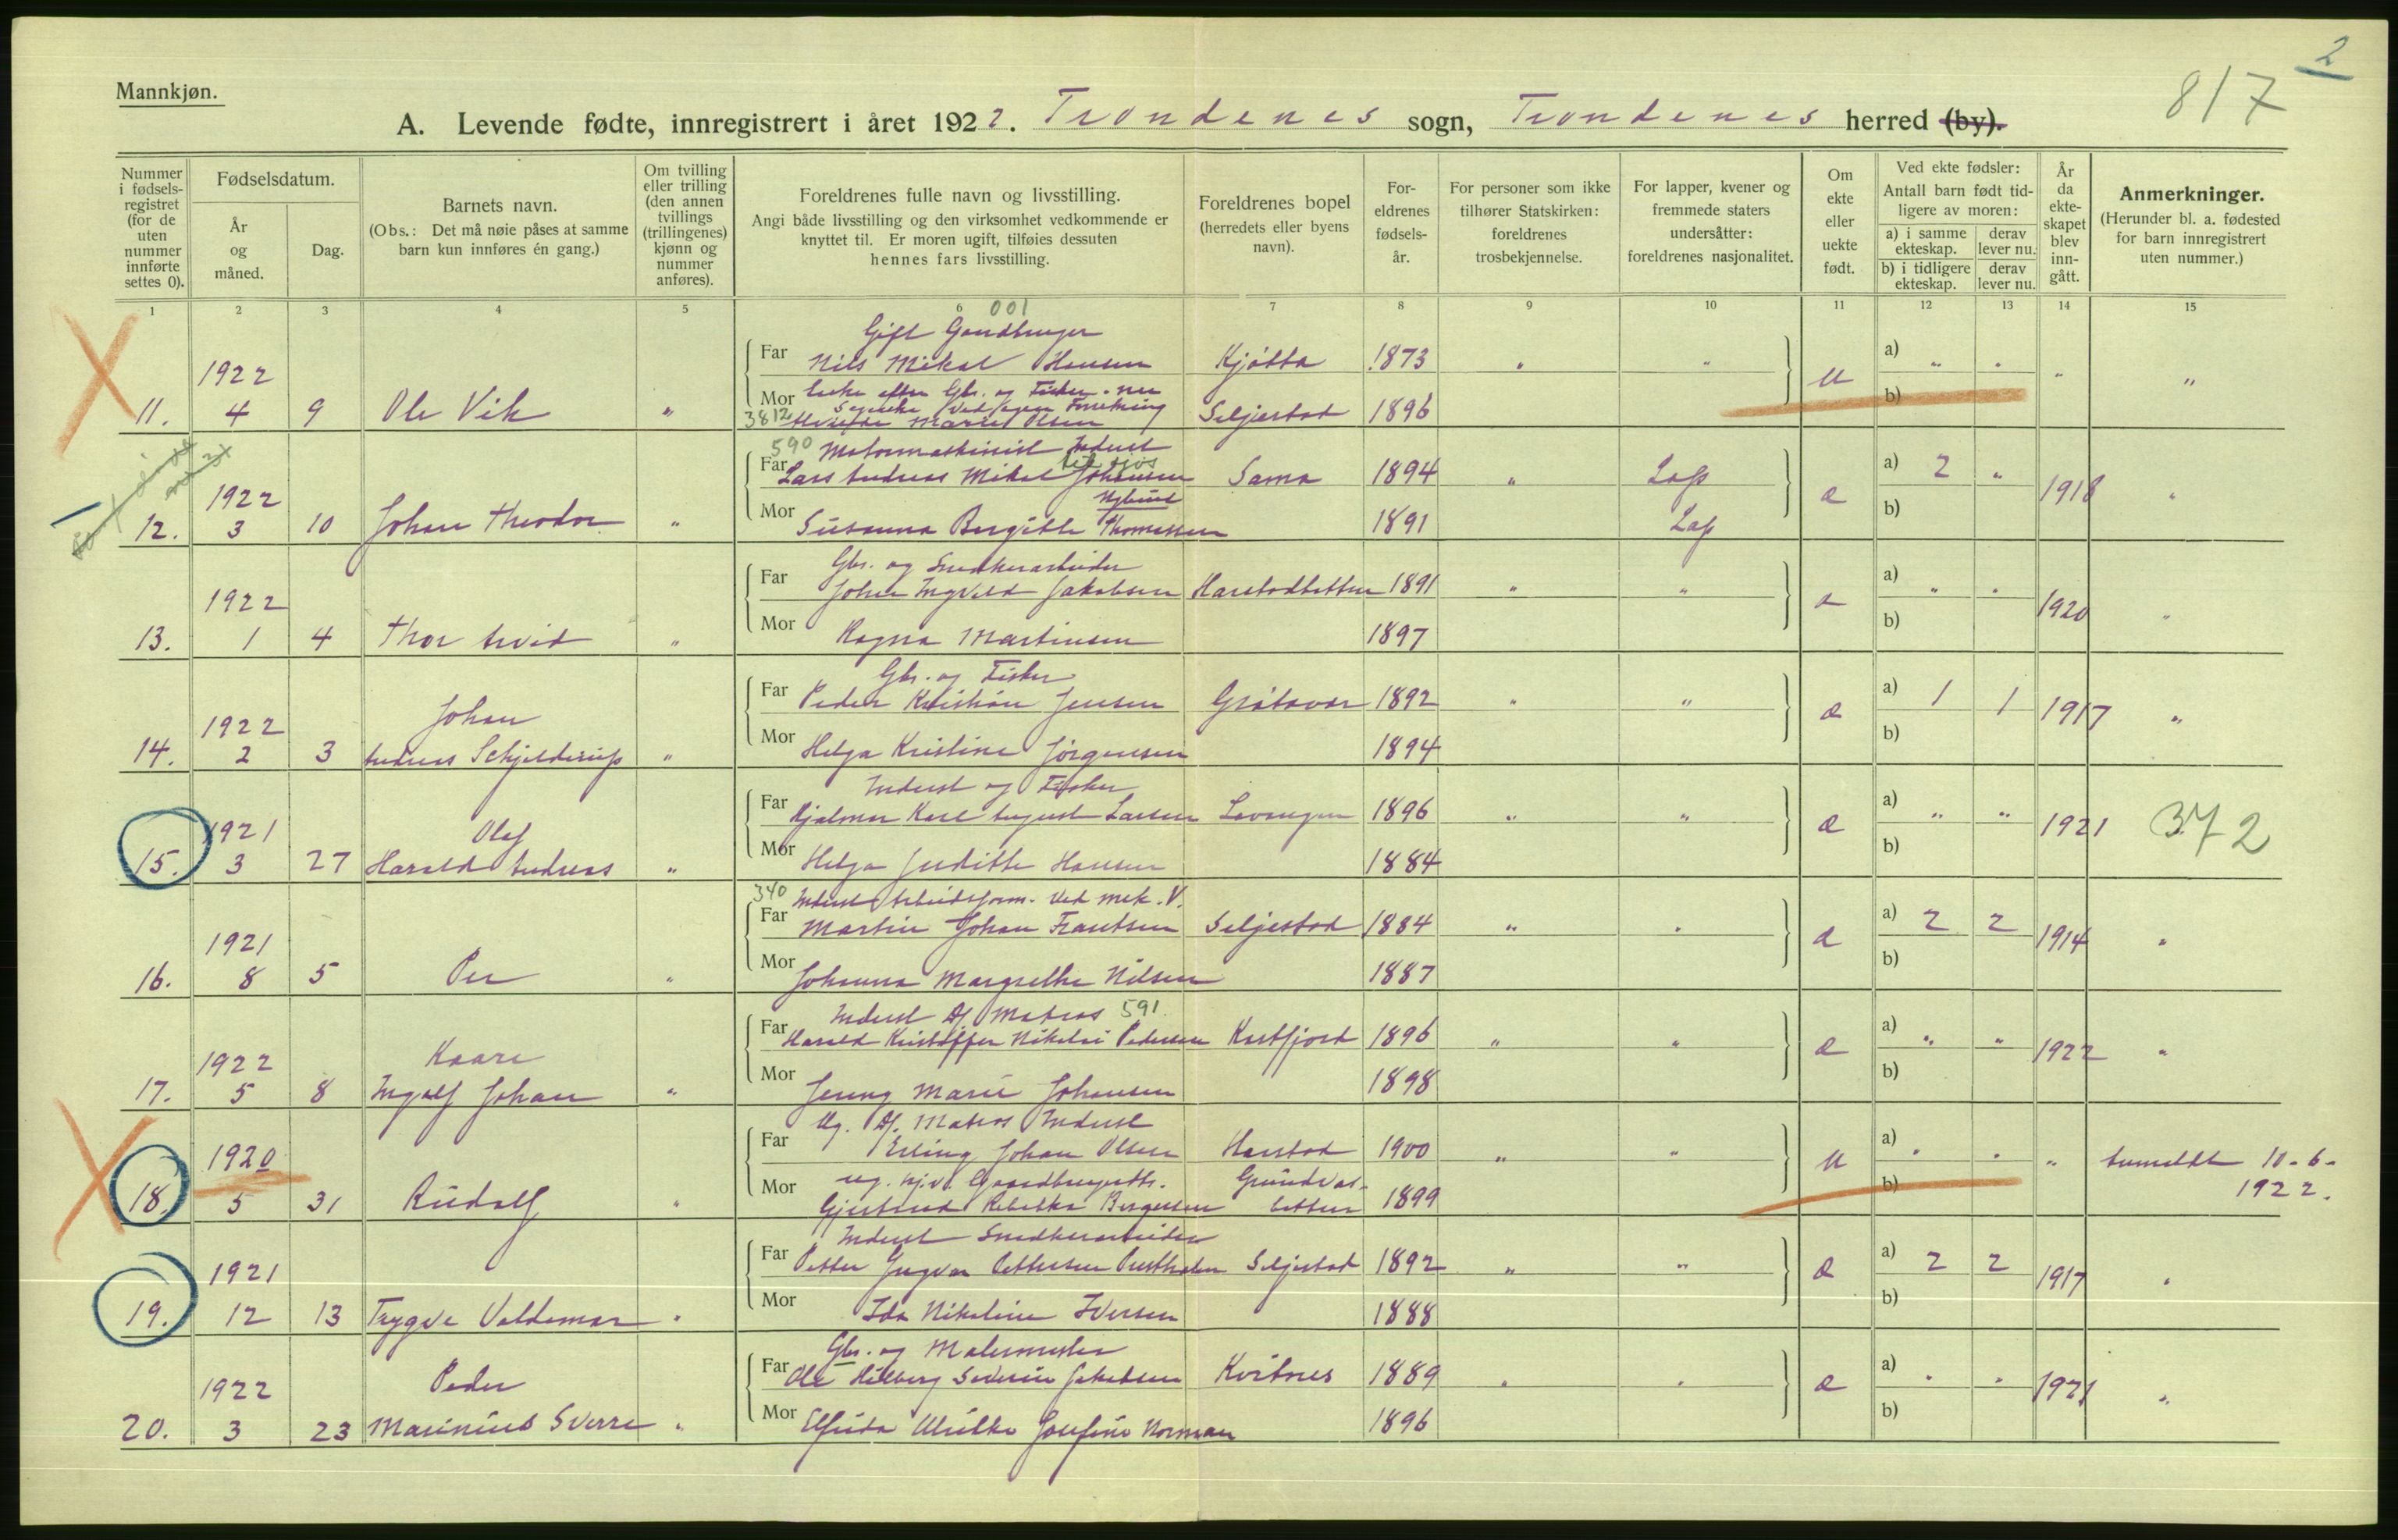 2
817
Mannkjøn.
A. Levende fødte, innregistrert i året 1922. Trondenes sogn, Trondenes herred (by).
Nummer i fødsels-registret (for de uten nummer innførte settes 0).
Fødselsdatum.
År og måned.
Dag.
Barnets navn.
(Obs.: Det må nøie påses at samme barn kun innføres én gang.)
Om tvilling eller trilling (den annen tvillings (trillingenes) kjønn og nummer anføres).
Foreldrenes fulle navn og livsstilling.
Angi både livsstilling og den virksomhet vedkommende er knyttet til. Er moren ugift, tilføies dessuten hennes fars livsstilling.
Foreldrenes bopel (herredets eller byens navn).
For-eldrenes fødsels-år.
For personer som ikke tilhører Statskirken: foreldrenes trosbekjennelse.
For lapper, kvener og fremmede staters undersåtter: foreldrenes nasjonalitet.
Om ekte eller uekte født.
Ved ekte fødsler:
Antall barn født tid-ligere av moren:
a) i samme ekteskap.
derav lever nu.
b) i tidligere ekteskap.
derav lever nu.
År da ekte-skapet blev inn-gått.
Anmerkninger.
(Herunder bl. a. fødested for barn innregistrert uten nummer.)
1 2 3 4 5 6 7 8 9 10 11 12 13 14 15
001
Gift Gaardbruger
Far Nils Mikal Hansen Kjøtta 1873 " "
11. 1922 4 9 Ole Vik " u a) " " " "
Mor Enke efter Gbr. og Fisker
3812 Marie Olsen Seljestad 1896 b)
590 Motormaskinist Inderst
til sjøs
Far Lars Andreas Mikal Johansen Sama 1894 " Lap
12. 1922 3 10 Johan Theodor " æ a) 2 " 1918 "
Nylund
Mor Susanna Bergitte Thomassen 1891 Lap b)
Gbr. og Snedkerarbeider
Far Johan Ingvald Jakobsen Harstadbotten 1891 " "
13. 1922 1 4 Thor Arvid " æ a) " " 1920 "
Mor Ragna Martinsen 1897 b)
Gbr. og Fisker
Far Peder Kristian Jensen Grøtavær 1892 " "
14. 1922 2 3 Johan Andreas Schjelderup " æ a) 1 1 1917 "
Mor Helga Kristine Jørgensen 1894 b)
Inderst og Fisker
Far Hjalmar Karl August Larsen Lavangen 1896 " "
15. 1921 3 27 Olaf Harald Andreas " æ a) " " 1921 372
Mor Helga Judithe Hansen 1884 b)
340 Inderst Arbeidsform. ved mek. V.
Far Martin Johan Frantsen Seljestad 1884 " "
16. 1921 8 5 Per " æ a) 2 2 1914 "
Mor Johanna Margrethe Nilsen 1887 b)
Inderst Df Matros 591
Far Harald Kristoffer Nikolai Pedersen Kastfjord 1896 " "
17. 1922 5 8 Kaare Ingolf Johan " æ a) " " 1922 "
Mor Jenny Marie Johansen 1898 b)
Ug. Df. Matros Inderst
Far Erling Johan Olsen Harstad 1900 " "
18. 1920 5 31 Rudolf " u a) " " " Anmeldt 10-6-1922.
Mor ug. hj.v. Gaardbrugerdtr.
Gjertrud Rebekka Bergersen 1899 b)
Inderst Snedkerarbeider
Far Petter Ingvar Pettersen Seljestad 1892 " "
19. 1921 12 13 Trygve Valdemar " æ a) 2 2 1917 "
Mor Ida Nikoline Iversen 1888 b)
Gbr. og Malermester
Far Ole Hilberg Severin Jakobsen Kvitnes 1889 " "
20. 1922 3 23 Peder Marinius Sverre " æ a) " " 1921 "
Mor Elfrida Ulrikke Josefine Norman 1896 b)